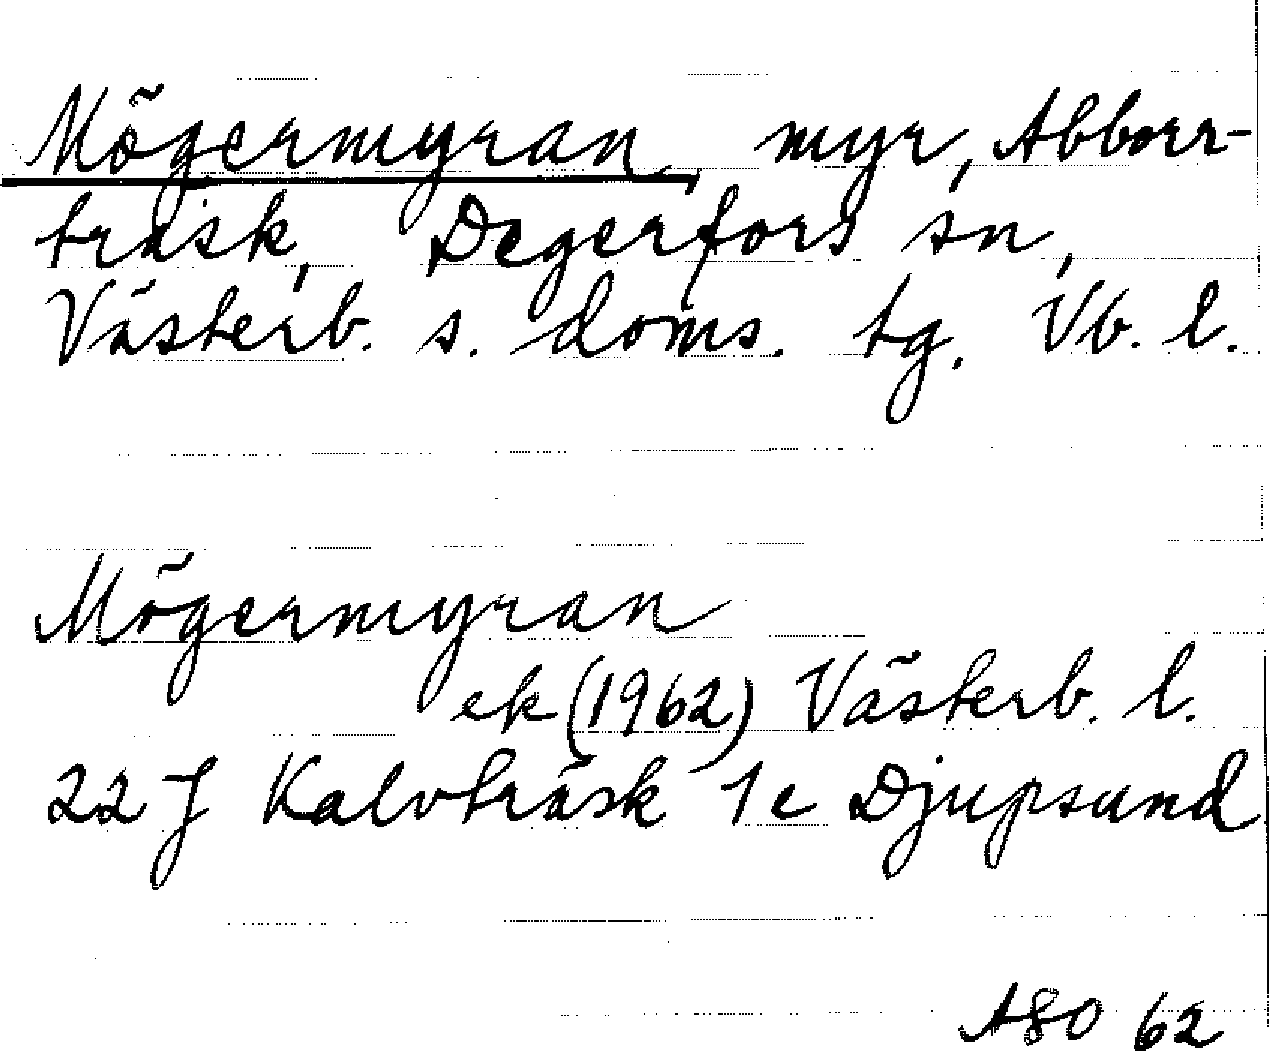 Mögermyran, myr, Abborr-
träsk, Degerfors sn,
Västerb. s. doms. tg. Vb. l.
Mögermyran
ek (1962) Västerb. l.
22 J Kalvträsk 1e Djupsund
ASO 62